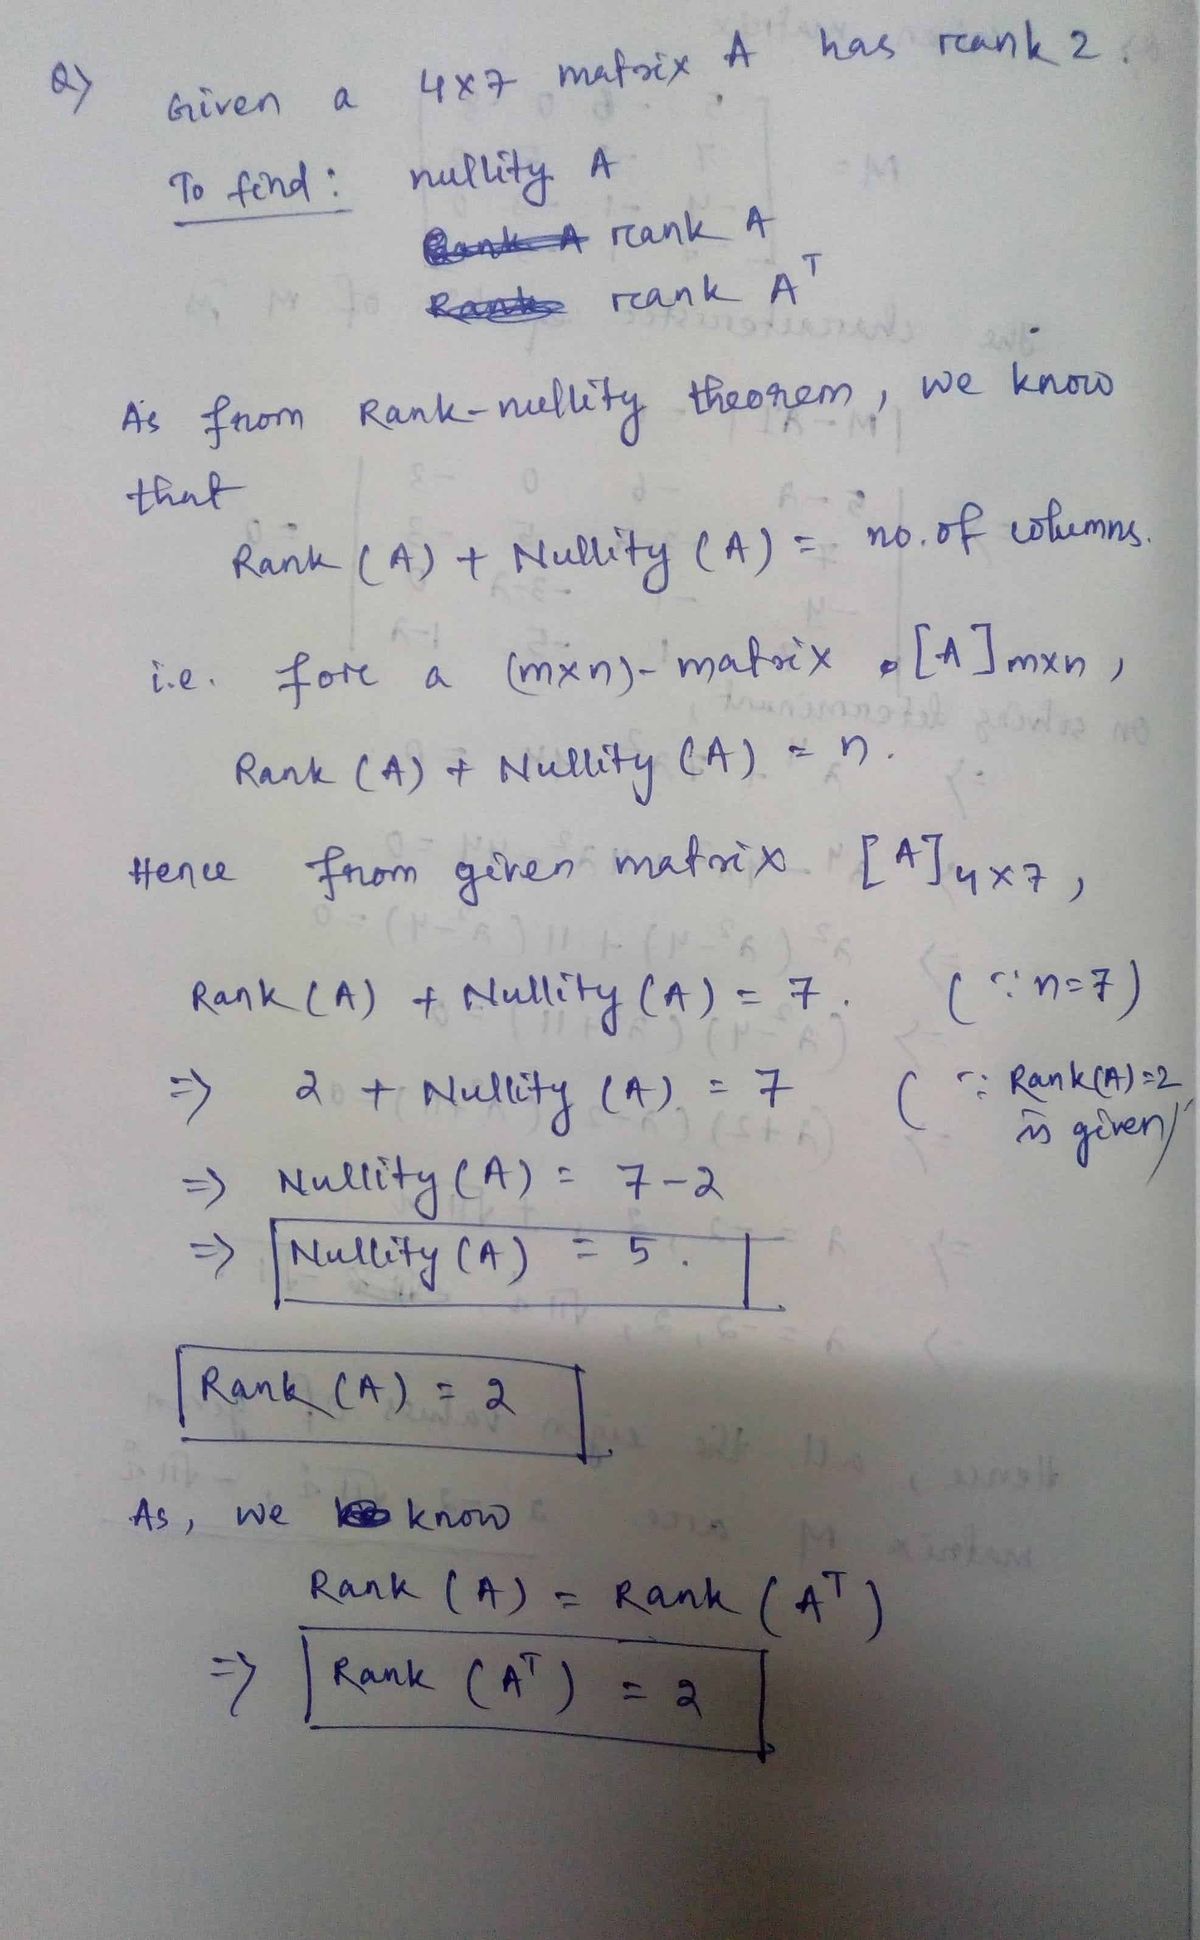 Q) Given a 4×7 matrix A has rank 2.
To find: nullity A
rank A
rank A^T
As from Rank-nullity theorem, we know
that
Rank (A) + Nullity (A) = no. of columns.
i.e. for a (m×n)- matrix [A]m×n,
Rank (A) + Nullity (A) = n.
Hence from given matrix [A]4×7,
Rank (A) + Nullity (A) = 7. (∵ n=7)
=> 2 + Nullity (A) = 7 (∵ Rank(A)=2
is given)
=> Nullity (A) = 7-2
=> Nullity (A) = 5.
Rank (A) = 2
As, we know
Rank (A) = Rank (A^T)
=> Rank (A^T) = 2